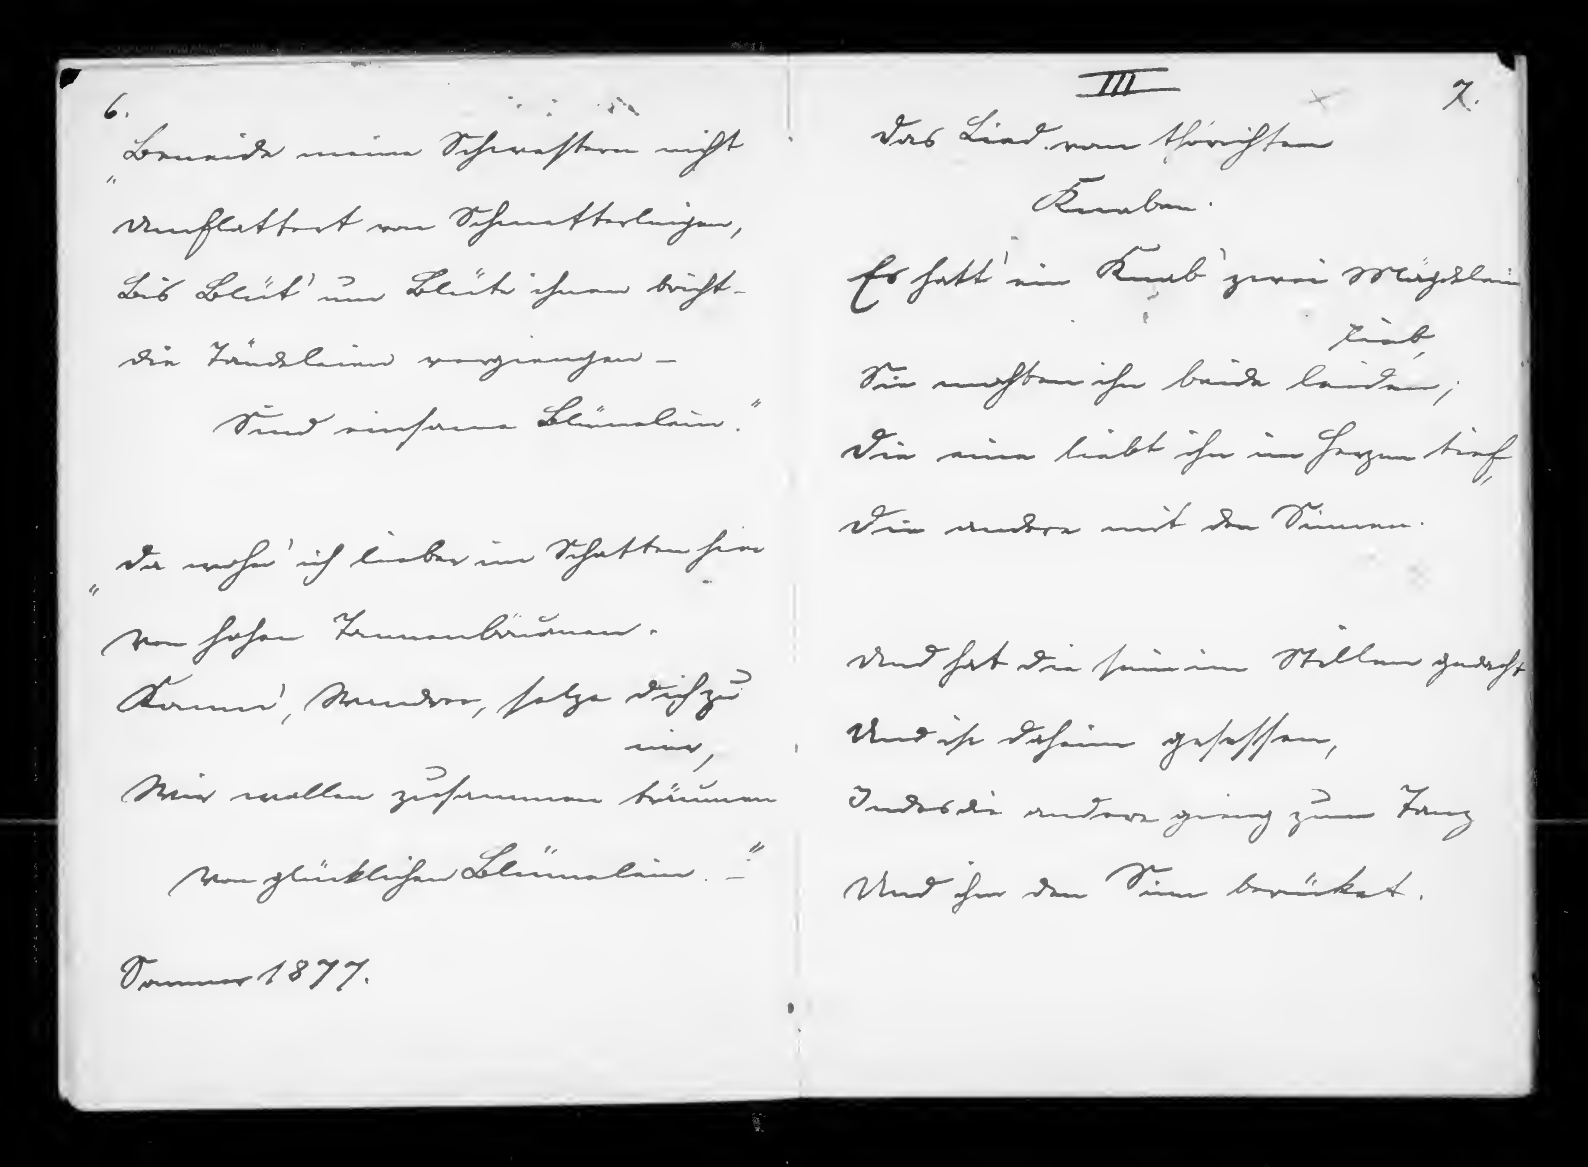 6.
"Beneide meine Schwestern nicht
Umflattert von Schmetterlingen,
Bis Blüt' um Blüte ihnen bricht –
die Tändeleien vergiengen –
Sind einsame Blümelein."
"Da wohn' ich lieber im Schatten hier
Von hohen Tannenbäumen.
Komm', Wandrer, setze dich zu
mir,
Wir wollen zusammen träumen
Von glücklichen Blümelein. –"
Sommer 1877.
III
7.
Das Lied vom thörichten
Knaben.
Es hatt' ein Knab' zwei Mägdlein
lieb,
Sie mochten ihn beide leiden;
Die eine liebt ihn im Herzen tief,
Die andere mit den Sinnen.
Und hat die sein im Stillen gedacht
Und ist daheim gesessen,
Indes die andere gieng zum Tanz
Und ihm den Sinn berücket.